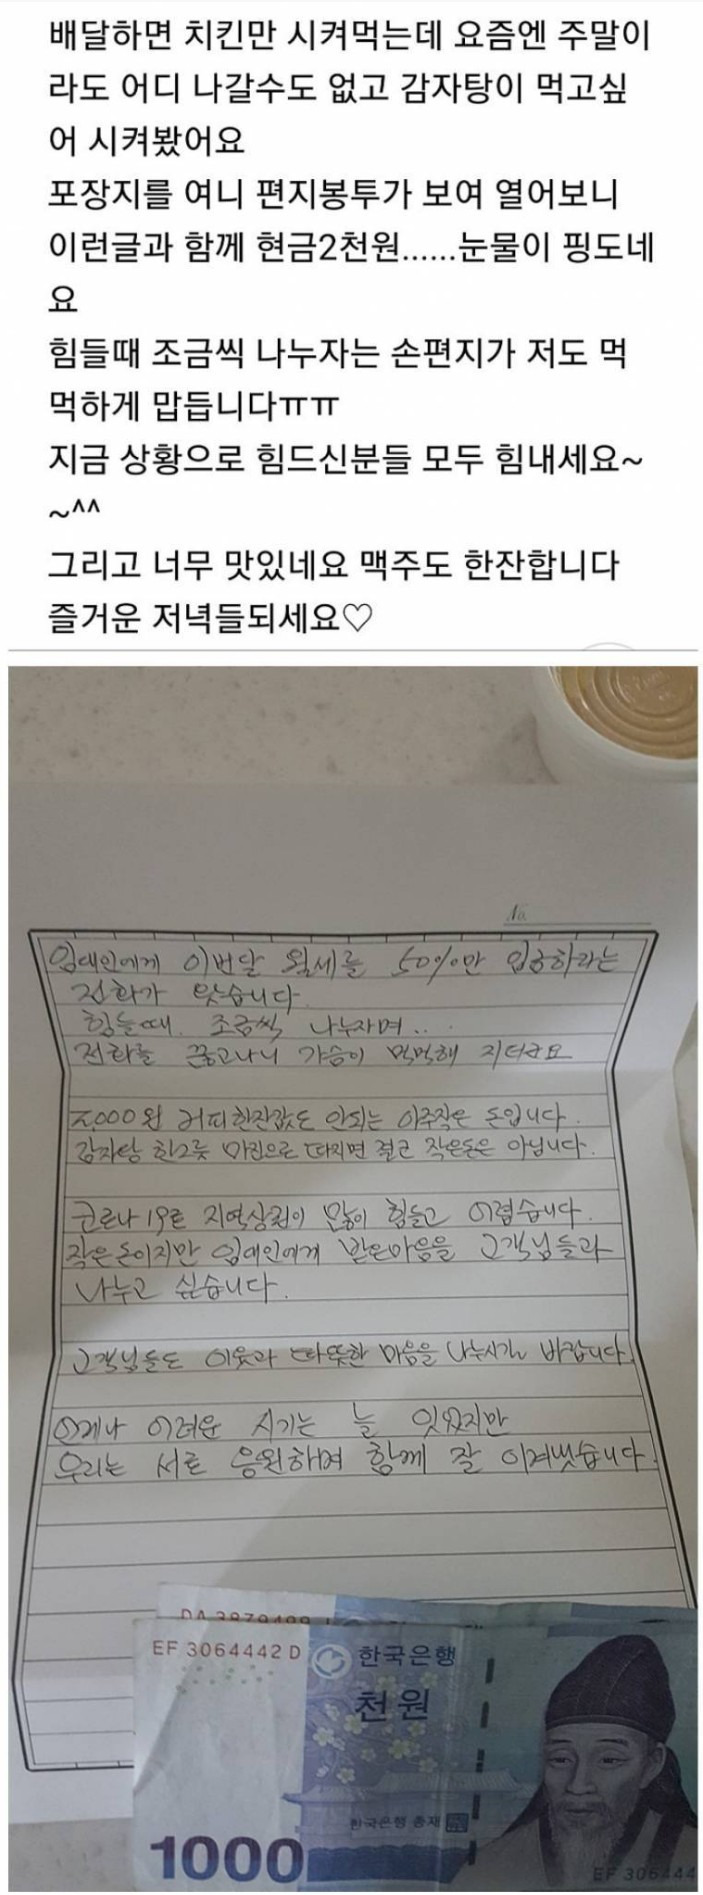 배달하면 치킨만 시켜먹는데 요즘엔 주말이
라도 어디 나갈수도 없고 감자탕이 먹고싶
어 시켜봤어요
포장지를 여니 편지봉투가 보여 열어보니
이런글과 함께 현금2천원......눈물이 핑도네
요
힘들때 조금씩 나누자는 손편지가 저도 먹
먹하게 맙듭니다ㅠㅠ
지금 상황으로 힘드신분들 모두 힘내세요~
~^^
그리고 너무 맛있네요 맥주도 한잔합니다
즐거운 저녁들되세요♡
No.
임대인에게 이번달 월세를 50%만 입금하라는
전화가 왔습니다.
힘들때 조금씩 나누자며...
전화를 끊고나니 가슴이 먹먹해 지더라요
2,000원 커피한잔값도 안되는 이주작은 돈입니다.
감자탕 한그릇 마진으로 따지면 결코 작은돈은 아닙니다.
코로나19로 지역상권이 많이 힘들고 어렵습니다.
작은돈이지만 임대인에게 받은마음을 고객님들과
나누고 싶습니다.
고객님들도 이웃과 따뜻한 마음을 나누시길 바랍니다.
언제나 어려운 시기는 늘 있었지만
우리는 서로 응원하며 함께 잘 이겨냈습니다.
EF 3064442 D
한국은행
천원
한국은행 총재
1000
EF 306444